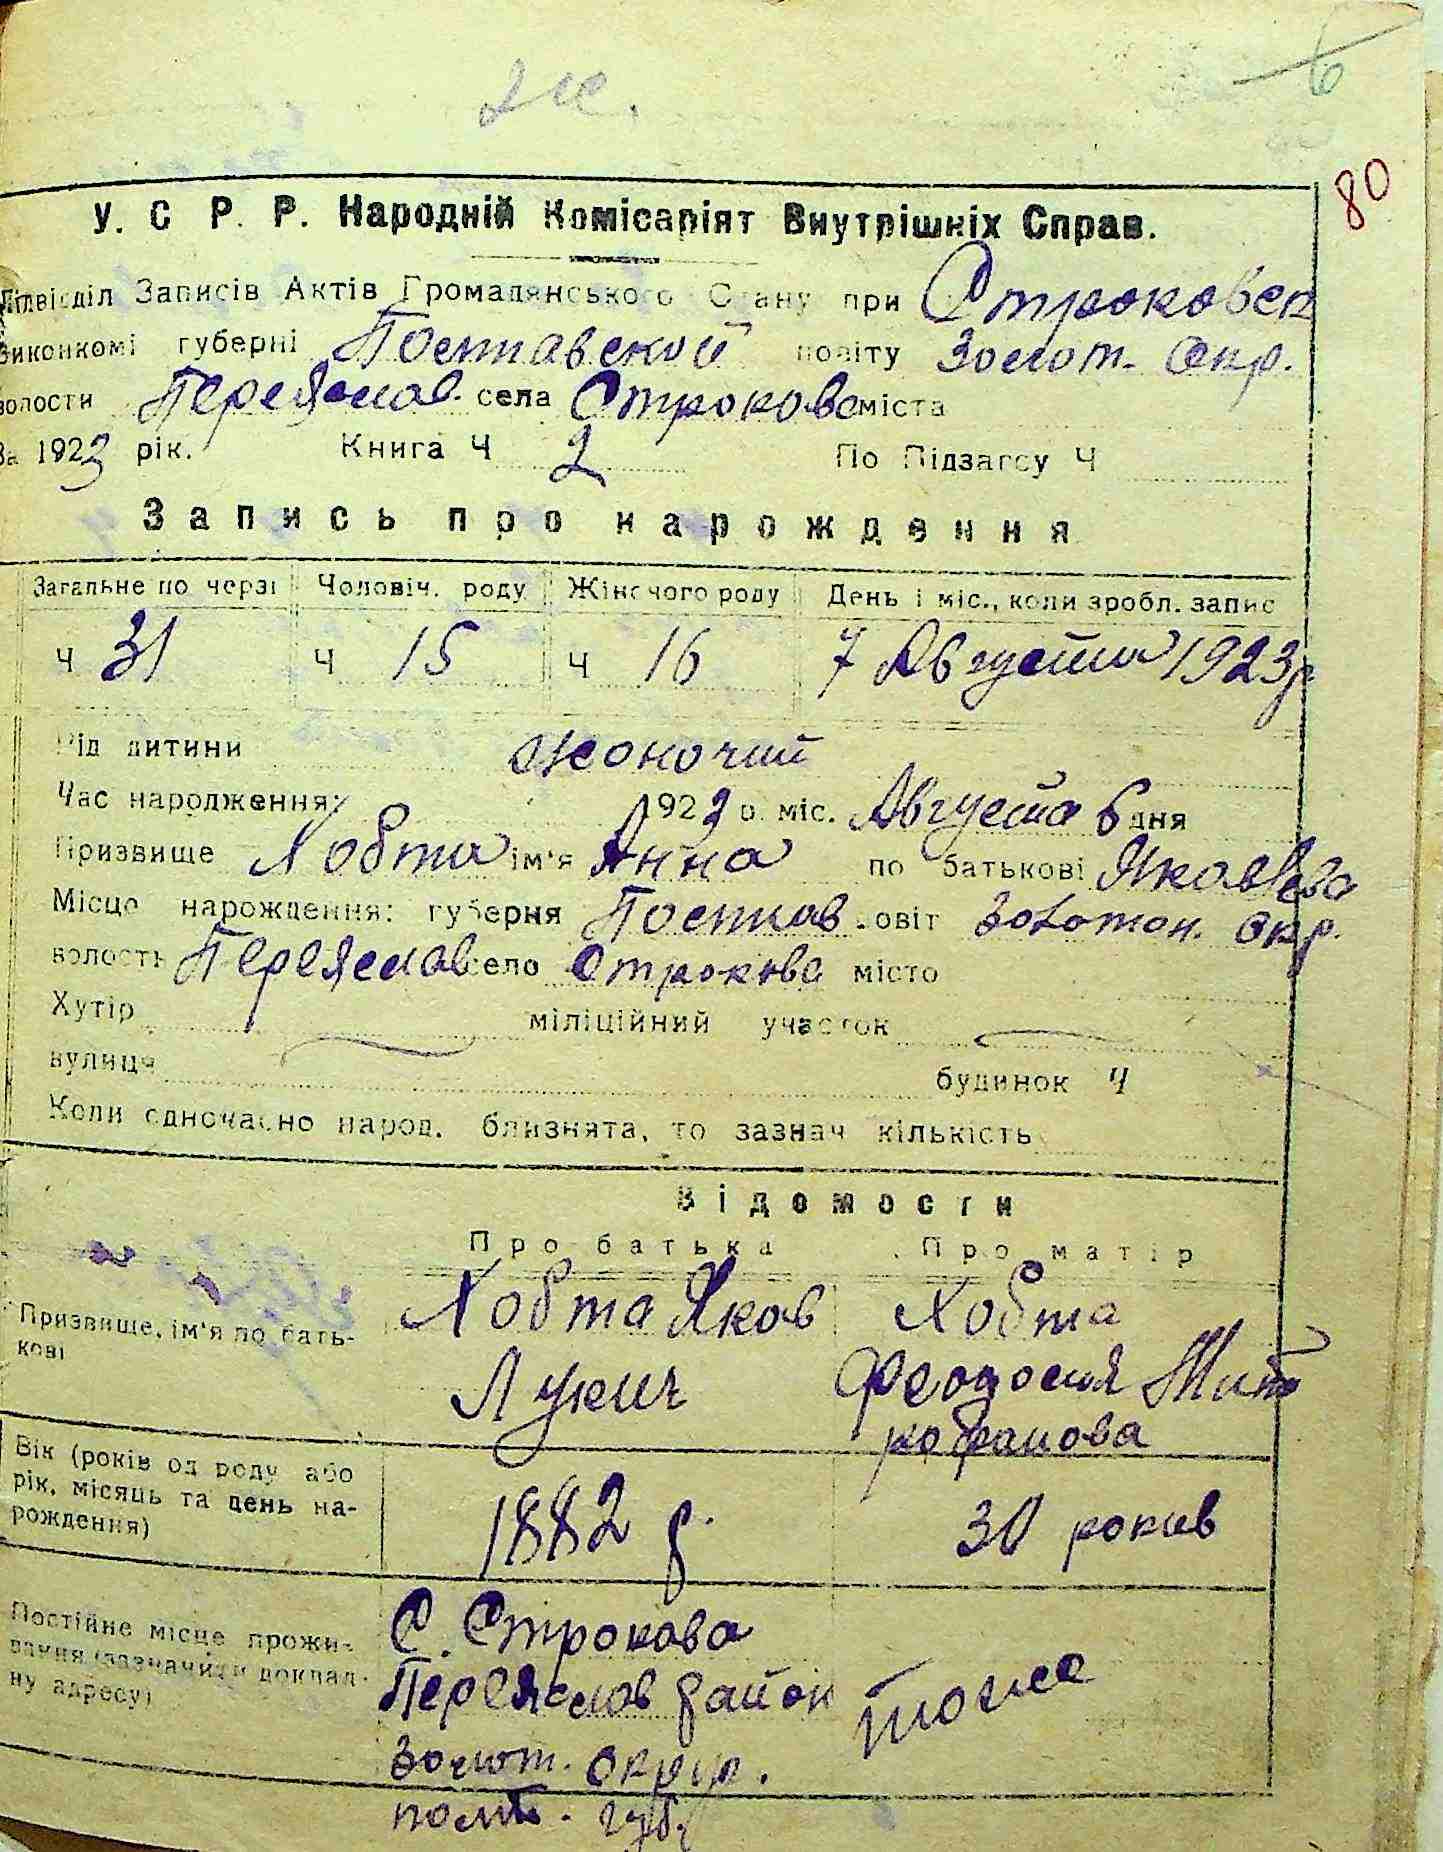 6
2 ж.
80
У. С Р. Р. Народній Комісаріят Внутрішніх Справ.
Підвідділ Записів Актів Громадянського Стану при Строковск
виконкомі губерні Полтавской повіту Золот. Окр.
волости Переяслав. села Строкова міста
За 1923 рік. Книга Ч 2 По Підзагсу Ч
Запись про нарождення
Загальне по черзі Чоловіч. роду Жіночого роду День і міс., коли зробл. запис
Ч 31 Ч 15 Ч 16 7 Августа 1923 р
Рід дитини жоночий
Час народження: 1923 о. міс. Августа 6 дня
Призвище Хобта ім'я Анна по батькові Яковлева
Місце нарождення: губерня Полтав. повіт Золотон. Окр.
волость Переяслав село Строкова місто
Хутір міліційний участок
вулиця будинок Ч
Коли одночасно народ. близнята, то зазнач кількість
Відомости
Про батька Про матір
Призвище, ім'я по бать-
кові
Хобта Яков Хобта
Лукич Феодосия Мит
рофанова
Вік (років од роду або
рік, місяць та день на-
рождення)
1882 р. 30 рокив
Постійне місце прожи-
вання (зазначити доклад-
ну адресу)
С. Строкова
Переяслов район тоже
Золот. округ.
полт. губ.